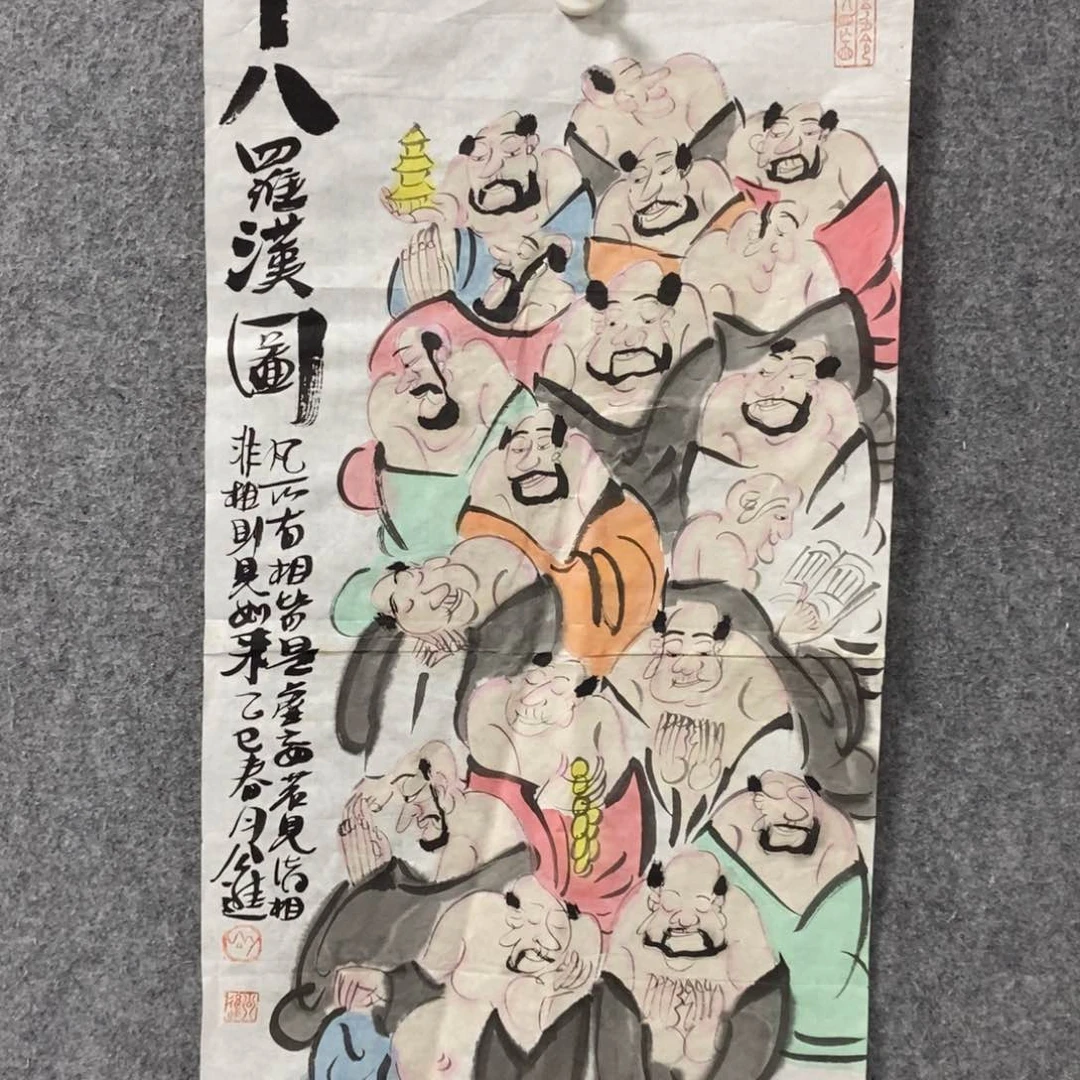 十八羅漢圖
凡所有相皆是虛妄若見諸相
非相則見如來乙巳春月公進